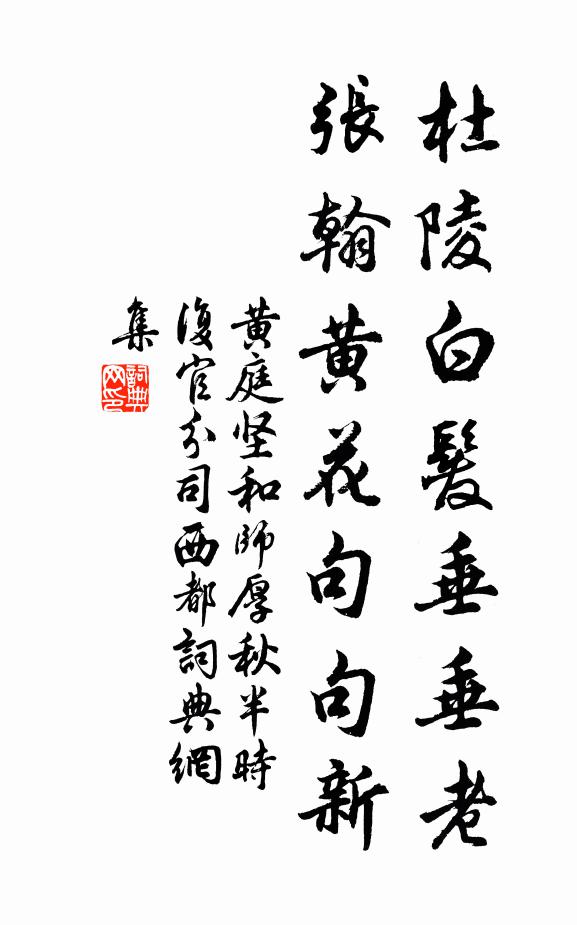 杜陵白髮垂垂老
張翰黃花句句新
黄庭坚和師厚秋半時
復官分司西都詞典網
集
詞典
网印